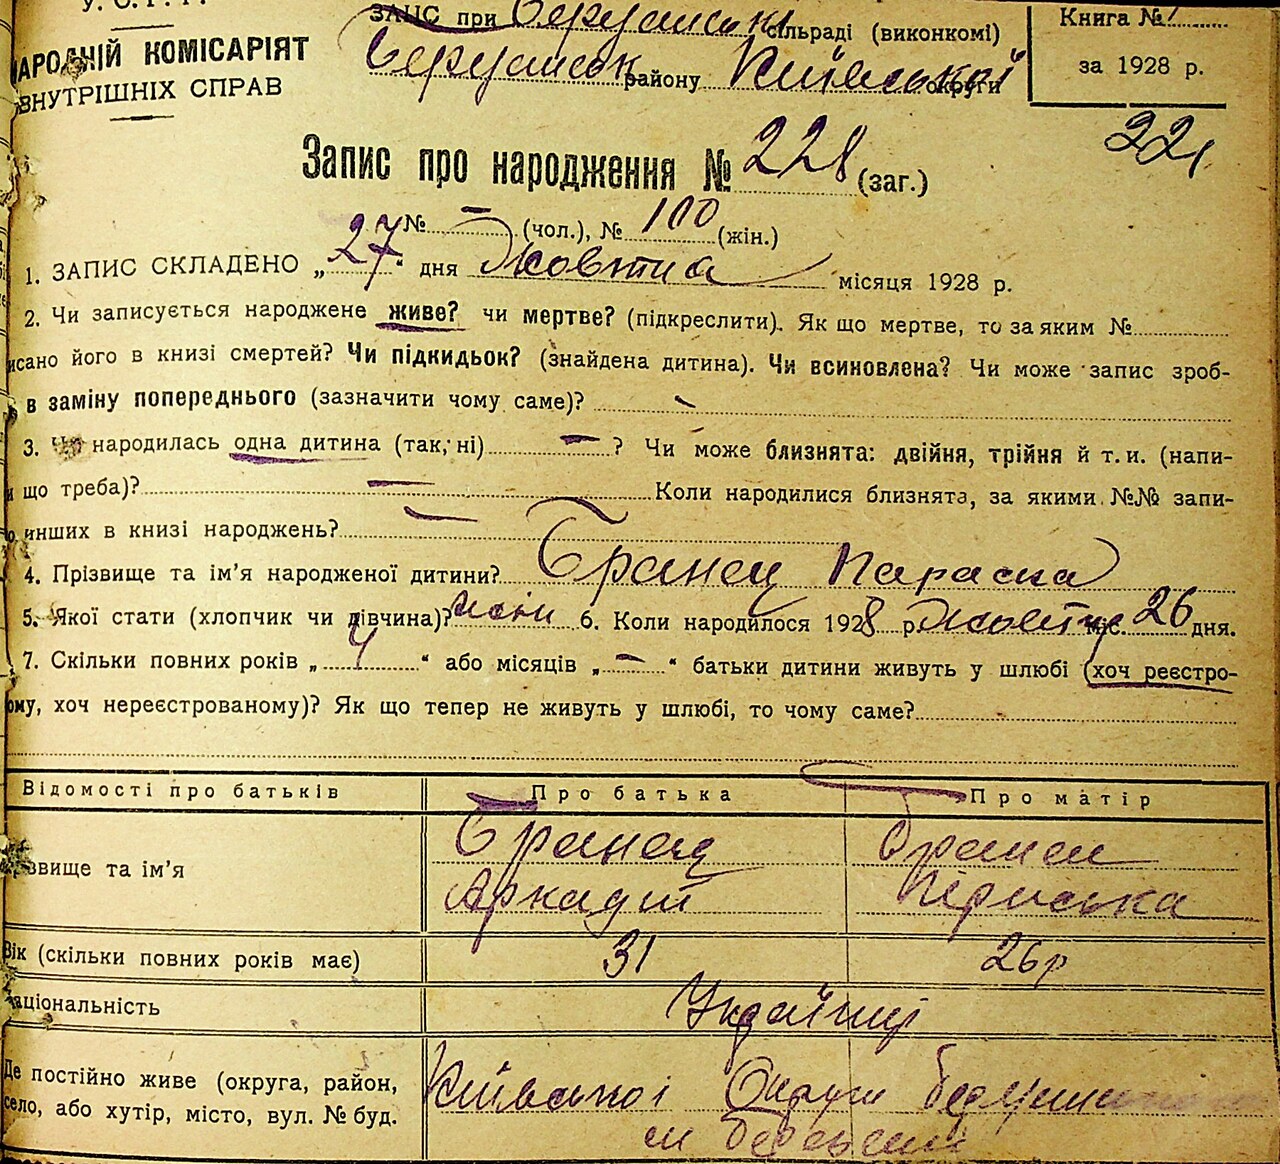 У. С. Р. Р.
НАРОДНІЙ КОМІСАРІЯТ
ВНУТРІШНІХ СПРАВ
ЗАПС при сільраді (виконкомі)
району Київської округи
Книга № 1
за 1928 р.
221
Запис про народження № 228 (заг.)
№ – (чол.), № 100 (жін.)
1. ЗАПИС СКЛАДЕНО „27“ дня Жовтня місяця 1928 р.
2. Чи записується народжене живе? чи мертве? (підкреслити). Як що мертве, то за яким №
исано його в книзі смертей? Чи підкидьок? (знайдена дитина). Чи всиновлена? Чи може запис зроб-
в заміну попереднього (зазначити чому саме)? –
3. Чи народилась одна дитина (так, ні) – ? Чи може близнята: двійня, трійня й т. и. (напи-
що треба)? – Коли народилися близнята, за якими №№ запи-
инших в книзі народжень? –
4. Прізвище та ім’я народженої дитини? Бранец Параска
5. Якої стати (хлопчик чи дівчина)? жін 6. Коли народилося 1928 р. Жовтня міс. 26 дня.
7. Скільки повних років „4“ або місяців „–“ батьки дитини живуть у шлюбі (хоч реєстро-
ому, хоч нереєстрованому)? Як що тепер не живуть у шлюбі, то чому саме?
Відомості про батьків Про батька Про матір
звище та ім’я Бранец Бранец
Аркадій Пріська
Вік (скільки повних років має) 31 26 р
аціональність Українці
Де постійно живе (округа, район, Київської Округи
село, або хутір, місто, вул. № буд.